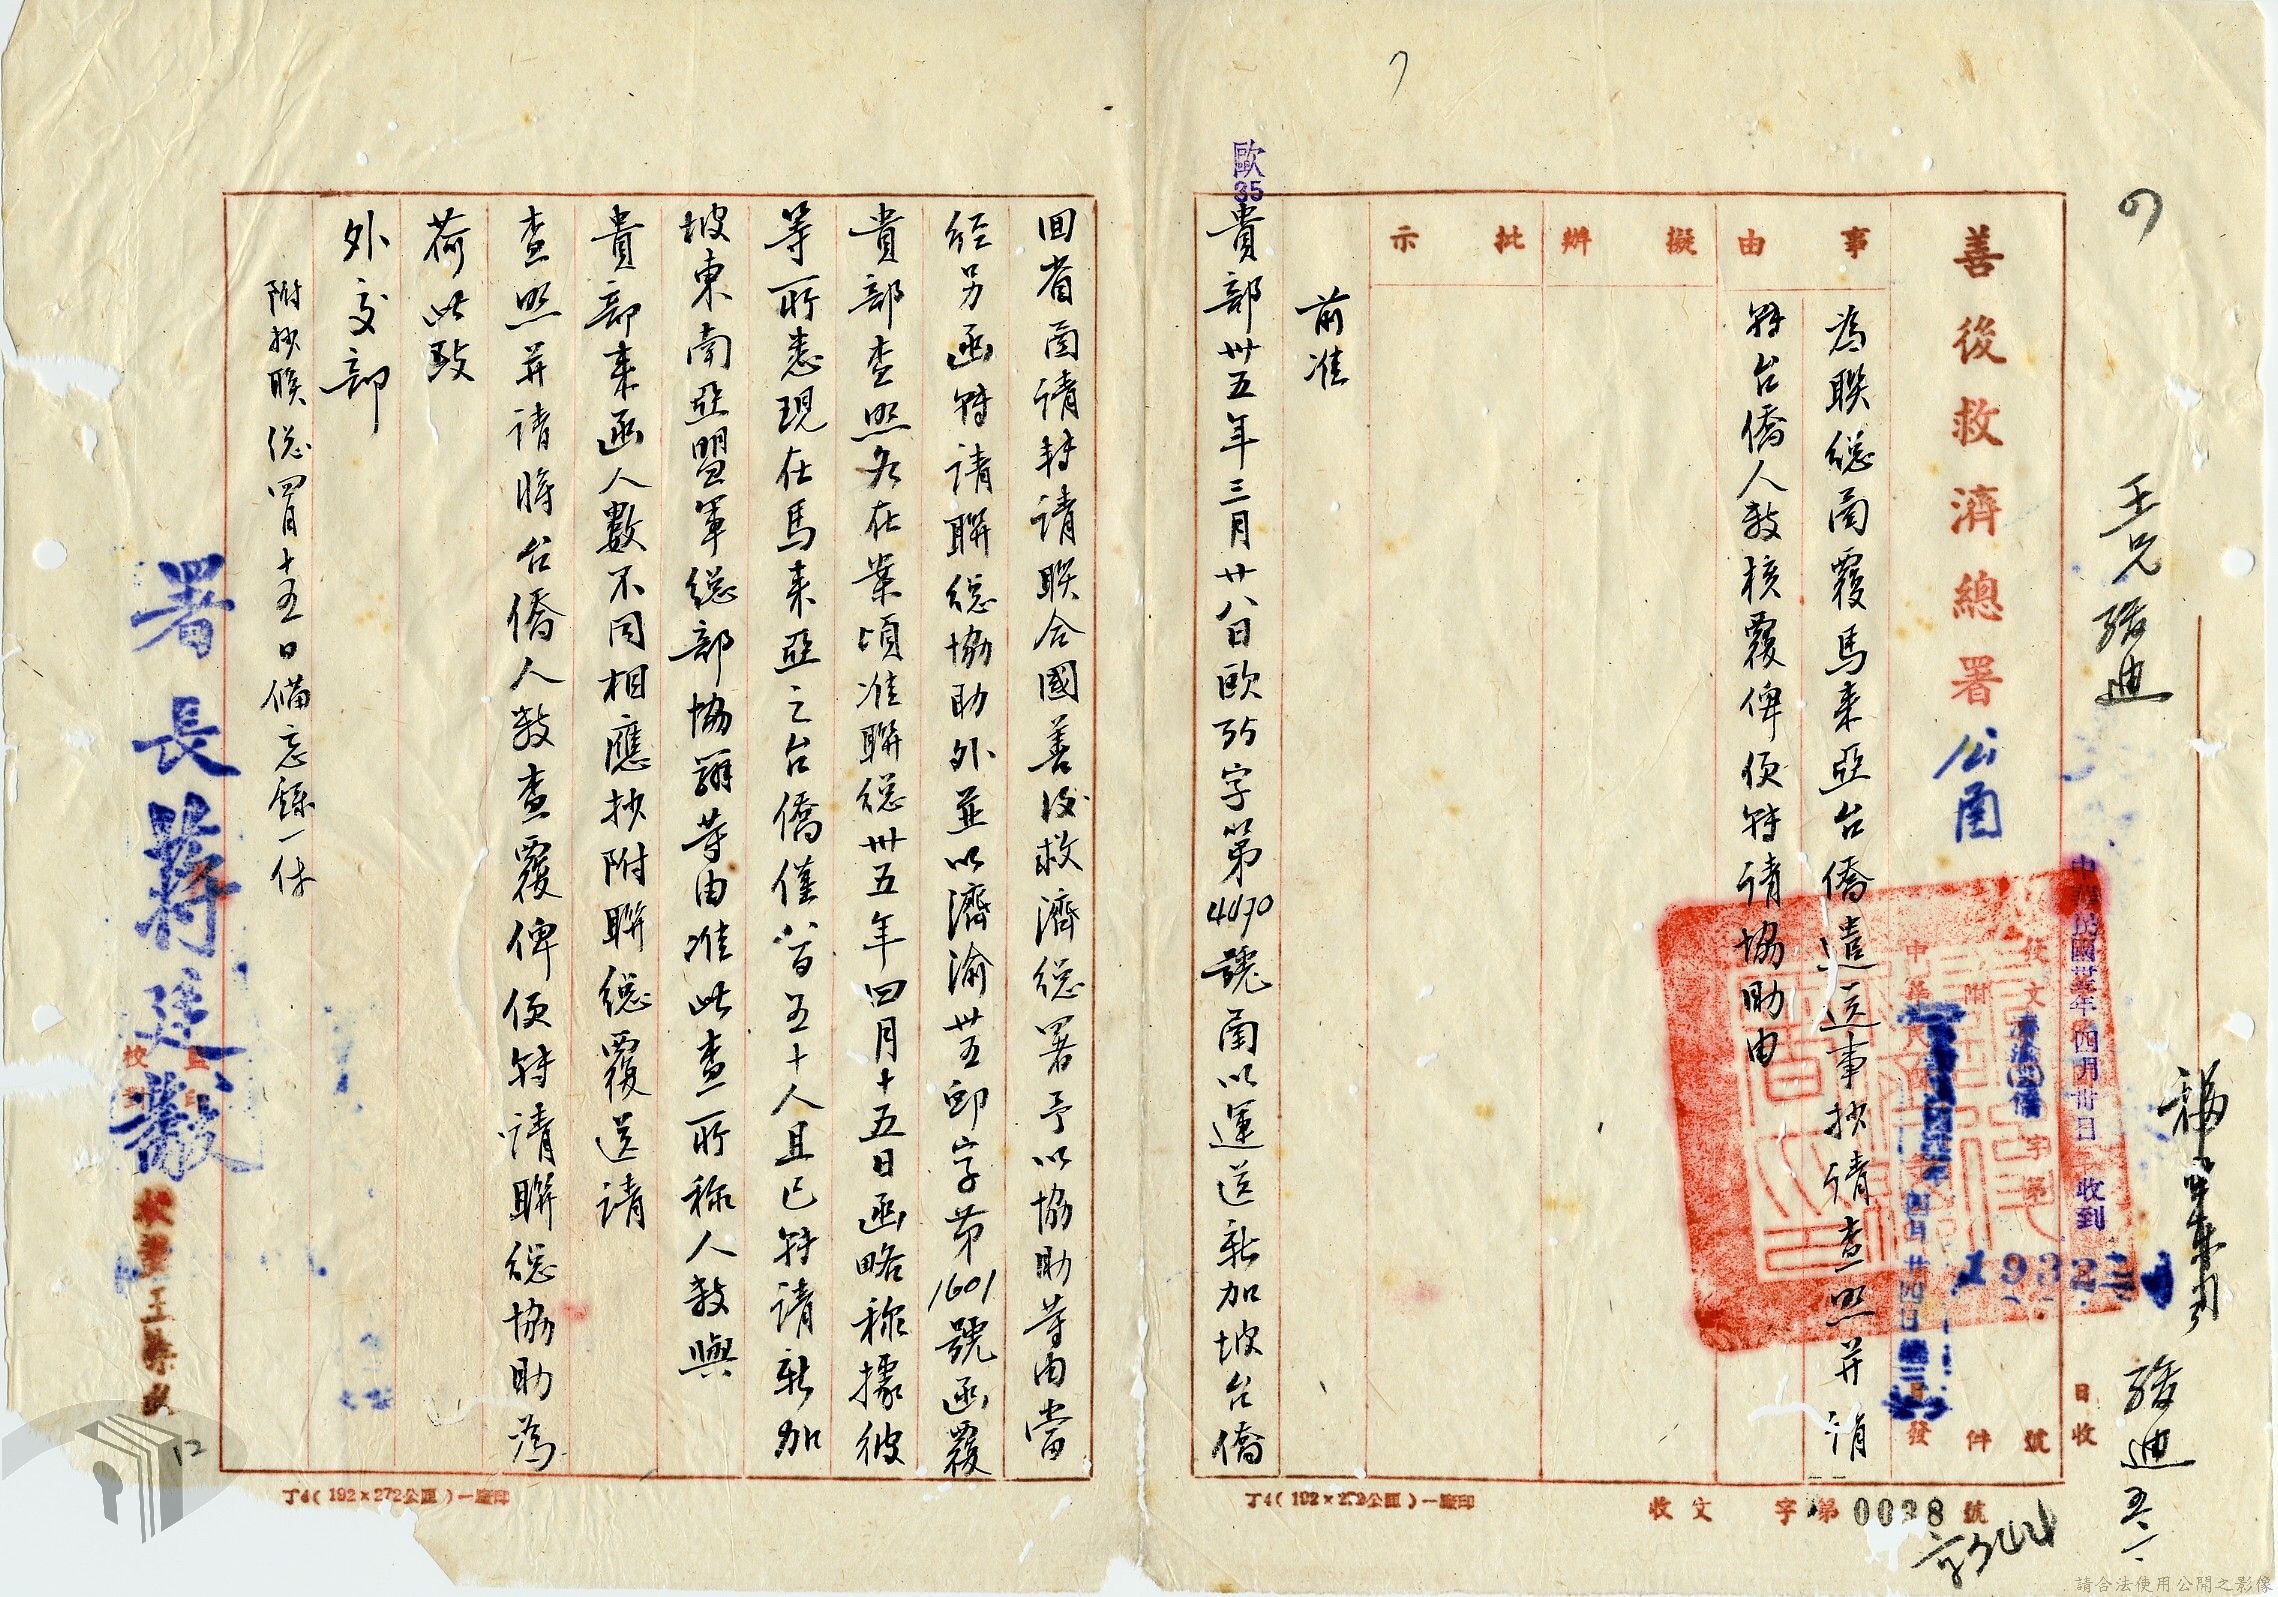 善後救濟總署公函
事由
擬辦
批示
為聯總函覆馬來亞台僑遣送事抄請查照并請
轉台僑人数核覆俾便轉請協助由
中華民國卅五年四月卅日收到
日收
發文
字第
號
附
件
1932
歐
35
前准
貴部卅五年三月廿八日歐35字第4470號函以運送新加坡台僑
回省函請轉請联合國善後救濟総署予以協助等由當
経另函轉請聯総協助外並以濟渝卅五卸字第1601號函覆
貴部查照各在案頃准聯総卅五年四月十五日函略称據彼
等所悉現在馬來亞之台僑僅八百五十人且已轉請新加
坡東南亞盟軍総部協辦等由准此查所称人数與
貴部來函人數不同相應抄附聯総覆送請
查照并請將台僑人数查覆俾便轉請聯総協助為
荷此致
外交部
附抄联総四月十五日備忘錄一件
署長蔣廷黻
監印
校對
12
丁4(192×272公厘)一廠印
丁4(192×272公厘)一廠印
收文 字第0038號
請合法使用公開之影像